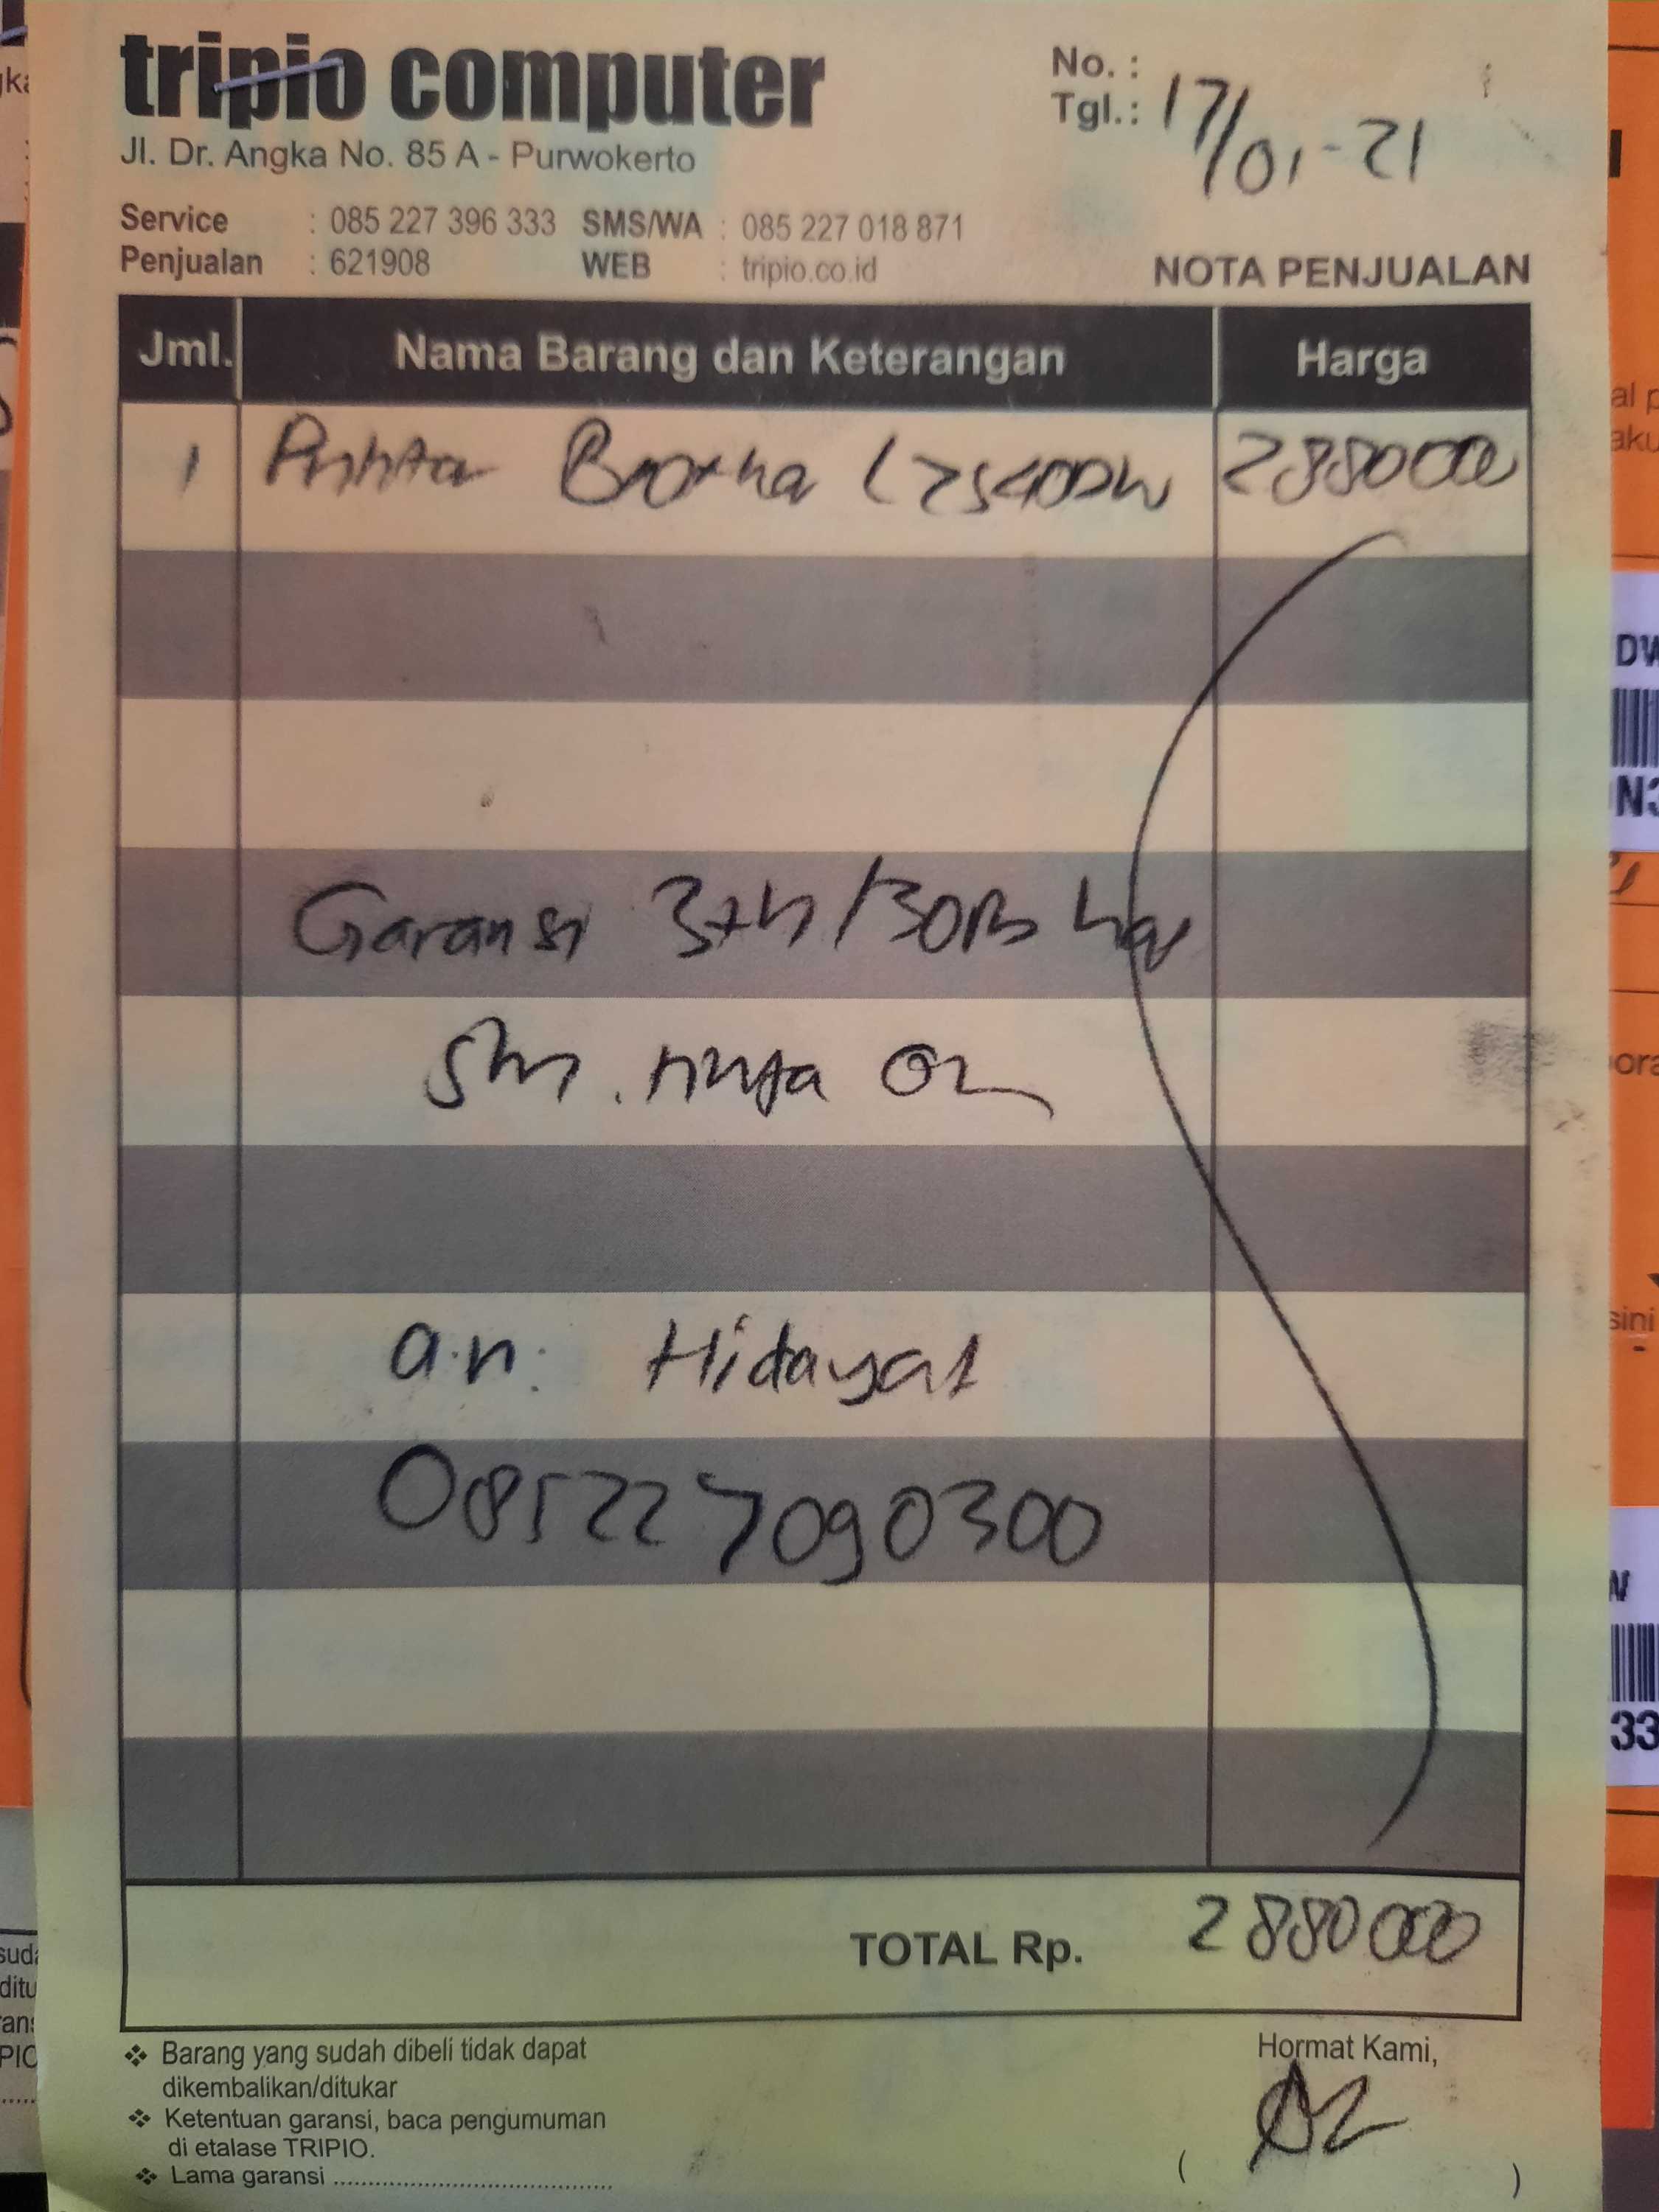 tripio computer
Jl. Dr. Angka No. 85 A - Purwokerto
Service : 085 227 396 333 SMS/WA : 085 227 018 871
Penjualan : 621908 WEB : tripio.co.id
No. :
Tgl. : 17/01-21
NOTA PENJUALAN
Jml. Nama Barang dan Keterangan Harga
1 Printer Brother L2540DW 2880000
Garansi 3th/30Rb
a.n: Hidayat
085227090300
TOTAL Rp. 2880000
❖ Barang yang sudah dibeli tidak dapat
dikembalikan/ditukar
❖ Ketentuan garansi, baca pengumuman
di etalase TRIPIO.
❖ Lama garansi ........................................
Hormat Kami,
( )
DW
33